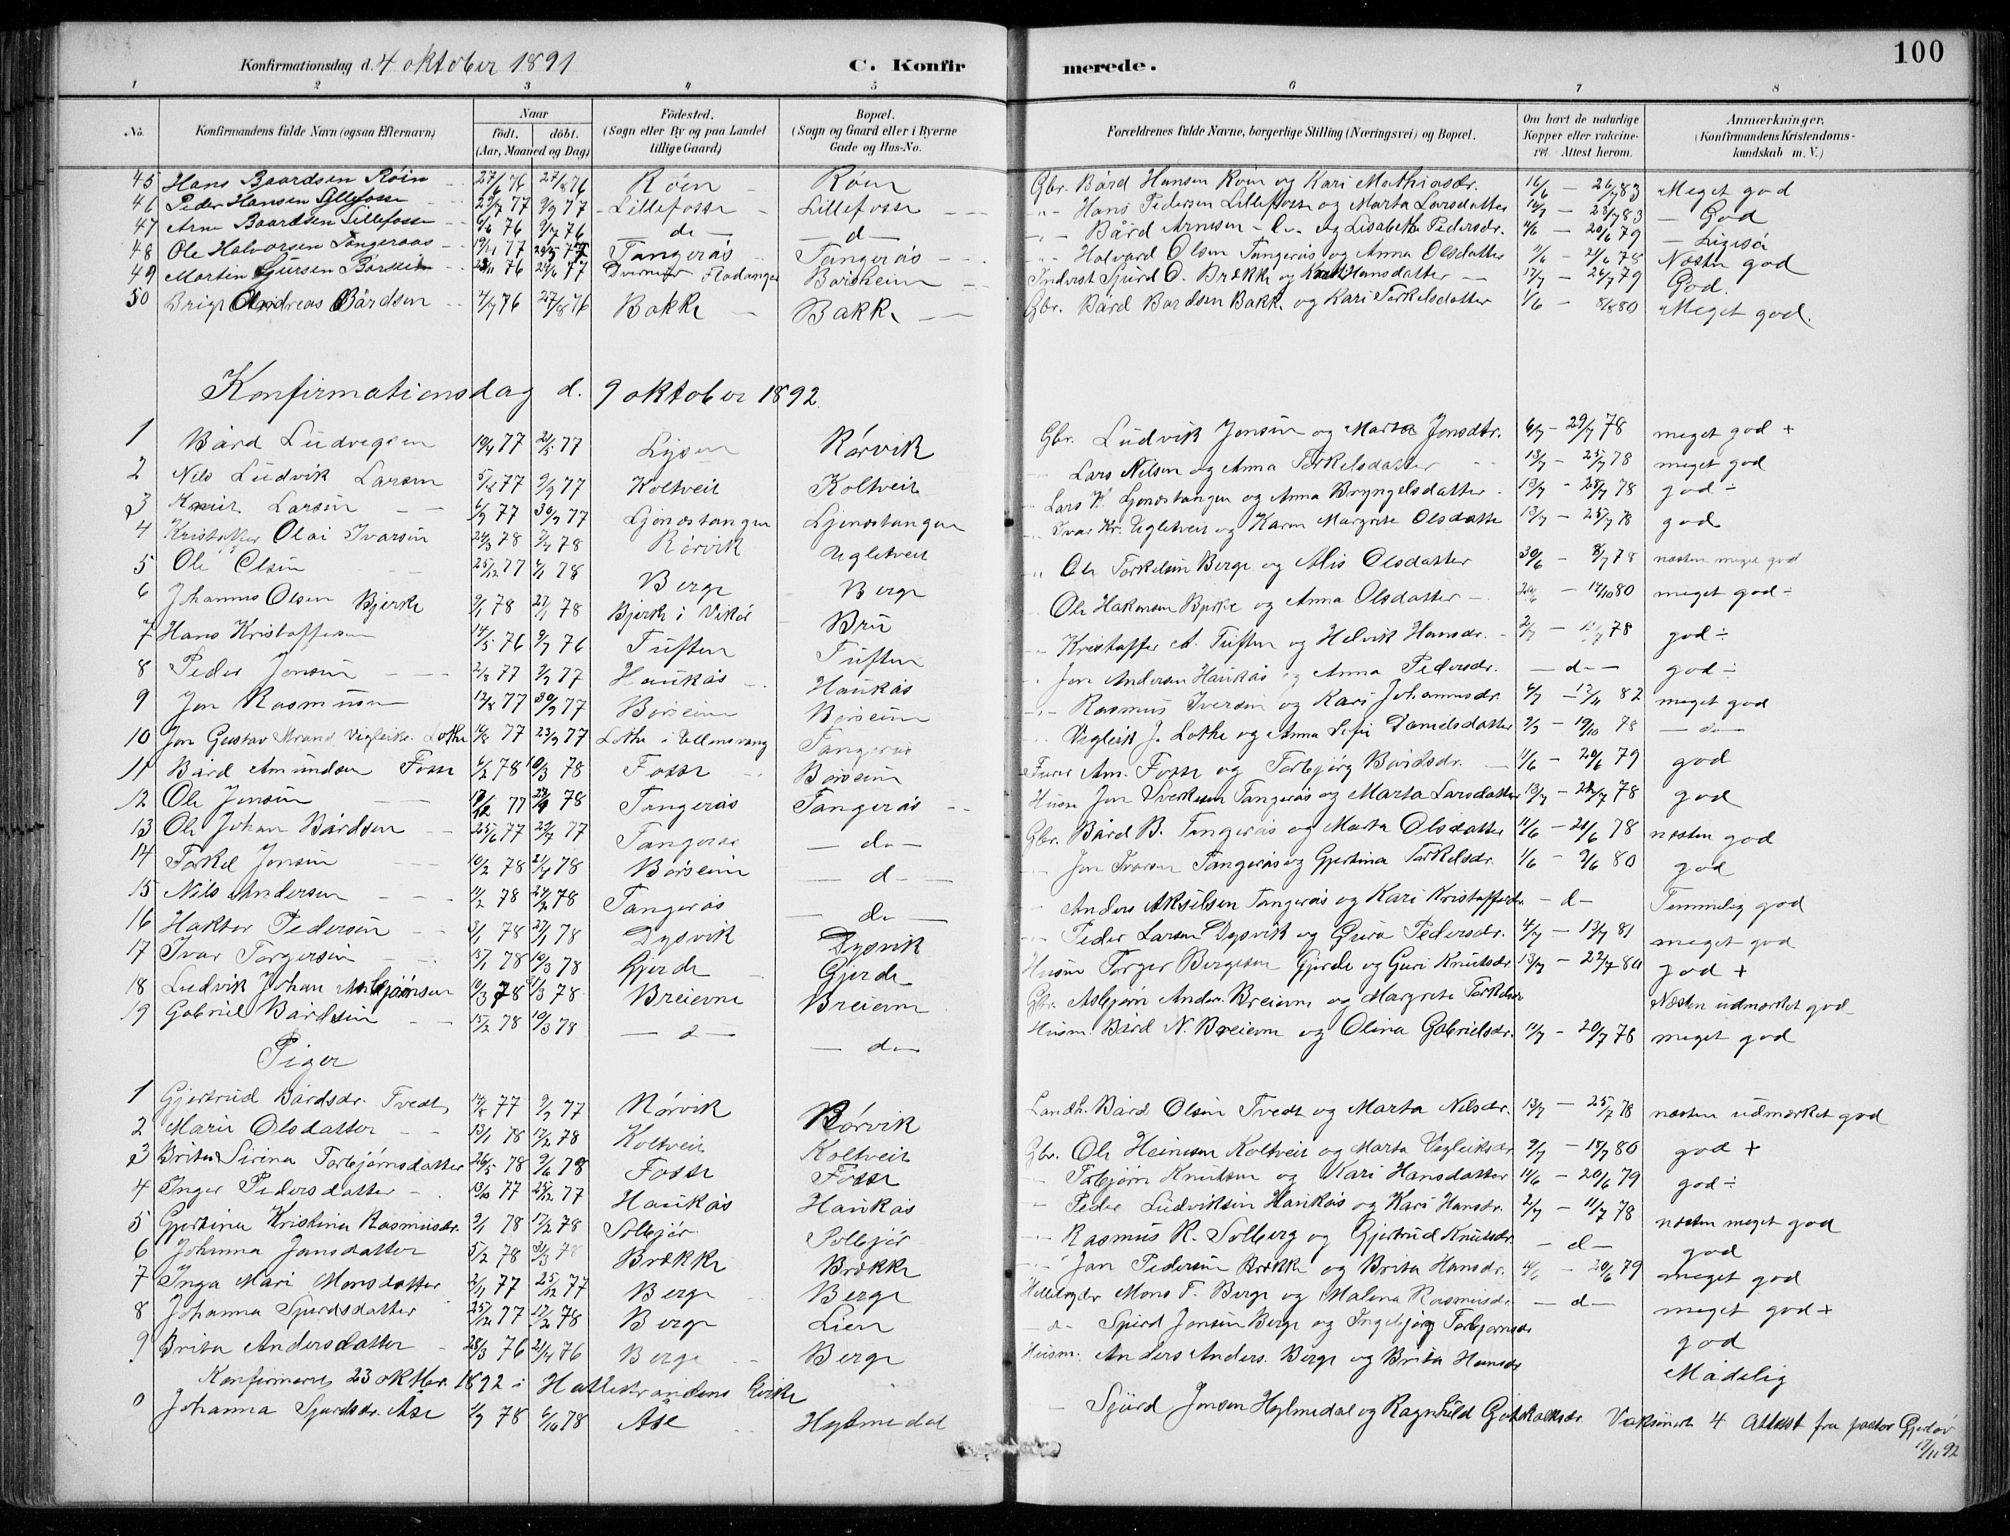 100
Konfirmationsdag d. 4 oktober 1891 C. Konfirmerede.
1 2 3 4 5 6 7 8
No. Konfirmandens fulde Navn (ogsaa Efternavn) Naar født, døbt. (Aar, Maaned og Dag) Fødested. (Sogn eller By og paa Landet tillige Gaard) Bopæl. (Sogn og Gaard eller i Byerne Gade og Hus-No. Forældrenes fulde Navne, borgerlige Stilling (Næringsvei) og Bopæl. Om havt de naturlige Kopper eller vakcineret. Attest herom. Anmærkninger. (Konfirmandens Kristendomskundskab m. V.)
45 Hans Baardsen Röin 27/6 76 27/8 76 Röen Röen Gbr. Bård Hansen Röen og Kari Mathiasdr. 16/6 – 26/7 83 Meget god
46 Peder Hansen Lillefosse 29/7 77 9/9 77 Lillefosse Lillefosse Hans Pedersen Lillefosse og Marta Larsdatter 16/7 – 28/7 83 God
47 Arne Baardsen Lillefosse 76 9/7 76 – do – – d – Bård Arnesen og Lisabeth Pedersdr. 4/6 – 20/6 79
48 Ole Halvorsen Tangeraas 19/1 77 77 Tangerås Tangerås Halvard Olsen Tangerås og Anna Olsdatter 11/6 – 21/6 78 Næsten god
49 Martin Sjursen Börsheim 76 77 Fladanger Börsheim Inderst Sjurd O. Brække og Hansdatter 17/7 – 26/7 79 God.
50 Andreas Bårdsen 7/7 76 27/8 76 Bakke Bakke Gbr. Bård Bardsen Bakke og Kari Torkelsdatter 1/6 – 8/8 80 Meget god.
Konfirmationsdag d. 9 oktober 1892.
1 Bård Ludvigsen 10/4 77 21/5 77 Lysen Rörvik Gbr. Ludvik Jensen og Marta Jonsdtr. 6/7 – 29/7 78 meget god +
2 Nils Ludvik Larsen 5/8 77 9/9 77 Koltveit Koltveit Lars Nilsen og Anna Torkelsdatter 13/7 – 25/7 78 meget god
3 Knut Larsen 6/9 77 30/9 77 Ljonestangen Ljonestangen Lars K. Ljonestangen og Anna Bryngelsdatter 13/7 – 25/7 78 god ÷
4 Kristoffer Olai Ivarsen 24/3 78 7/4 78 Rörvik Ugletveit Ivar Kr. Ugletveit og Karen Margrete Olsdatte 13/7 – 25/7 78 god
5 Ole Olsen 25/12 77 6/1 78 Berge Berge Ole Torkelsen Berge og Alis Olsdatter 30/6 – 8/7 78 næsten meget god
6 Johannes Olsen Bjerke 9/1 78 27/1 78 Bjerke i Vikör Bru Ole Hakonsen Bjerke og Anna Olsdatter 20/6 – 14/10 80 meget god ÷
7 Hans Kristoffersen 14/5 76 9/7 76 Tuften Tuften Kristoffer A. Tuften og Helvik Hansdr. 2/7 – 11/7 78 god ÷
8 Peder Jonsen 2/8 77 9/9 77 Haukås Haukås Jon Andersen Haukås og Anna Pedersdr. – do – god ÷
9 Jon Rasmusen 12/8 77 30/9 77 Börseim Börseim Rasmus Iversen og Kari Johannesdr. 6/7 – 12/11 82 meget god
10 Jon Gustav Strand Vigleiks. Lothe 14/8 77 23/9 77 Lothe i Ullensvang Tangerås Vigleik J. Lothe og Anna Sofie Danielsdatter 9/5 – 19/10 78 – do –
11 Bård Amundsen Fosse 6/2 78 10/3 78 Fosse Börseim Furer Am. Fosse og Torbjörg Bårdsdr. 11/6 – 20/6 79 god
12 Ole Jonsen 19/12 77 78 Tangerås Tangerås Husm Jon Sverkesen Tangerås og Marta Larsdatter 13/7 – 22/7 78 god
13 Ole Johan Bårdsen 25/6 77 29/7 77 Tangerås – do – Gbr. Bård B. Tangerås og Marta Olsdatter 11/6 – 21/6 78 næsten god
14 Torkel Jonsen 10/2 78 21/4 78 Börseim – d – Jon Ivarsen Tangerås og Gjertina Torkelsdr. 1/6 – 9/6 80 god
15 Nils Andersen 11/2 78 24/2 78 Tangerås – do – Anders Akselsen Tangerås og Kari Kristofferdr – d – Temmelig god
16 Haktor Pedersen 3/1 78 27/1 78 Dysvik Dysvik Peder Larsen Dysvik og Guro Pedersdr. 4/7 – 13/7 81 meget god
17 Ivar Torgersen 13/1 78 10/3 78 Gjerde Gjerde Husm Torger Bergesen Gjerde og Guri Knutsdr. 13/7 – 22/7 80 god +
18 Ludvik Johan Asbjörnsen 10/3 78 31/3 78 Breievne Breievne Gbr. Asbjörn Anders. Breievne og Margrete Torkelsdr Næsten udmærket god
19 Gabriel Bårdsen 15/2 78 10/3 78 – d – – do – Husm Bård N. Breievne og Olina Gabrielsdr. 11/7 – 20/7 78 meget god
Piger
1 Gjertrud Bårdsdr. Tvedt 14/8 77 9/9 77 Rörvik Rörvik Landh. Bård Olsen Tvedt og Marta Nilsdr. 13/7 – 25/7 78 næsten udmærket god
2 Marie Olsdatter 13/1 78 17/2 78 Koltveit Koltveit Gbr. Ole Heinesen Koltveit og Marta Vigleiksdr 9/7 – 18/7 80 god +
3 Brita Sirina Torbjörnsdatter 26/5 78 9/6 78 Fosse Fosse Torbjörn Knutsen og Kari Hansdatter 11/6 – 20/6 79 god ÷
4 Inger Pedersdatter 13/10 77 25/12 77 Haukås Haukås Peder Ludviksen Haukås og Kari Hansdr. 2/7 – 11/7 78 næsten meget god
5 Gjertina Kristina Rasmusdr. 9/1 78 17/2 78 Solbjör Solbjör Rasmus R. Solberg og Gjertrud Knutsdr – d – god
6 Johanna Jonsdatter 5/2 78 31/3 78 Brække Brække Jon Pedersen Brække og Brita Hansdr. 11/6 – 20/6 79 meget god
7 Inga Mari Monsdatter 2/11 77 25/12 77 Berge Berge Mons T. Berge og Malena Rasmusdr – d – meget god +
8 Johanna Sjurdsdatter 25/12 77 17/2 78 Berge Lien – d – Sjurd Jonsen Berge og Ingebjørg Torbjørnsdr god
9 Brita Andersdatter 28/3 76 21/4 76 Berge Berge Husm. Anders Anders. Berge og Brita Hansdr Mådelig
Konfirmeret 23 oktbr. 1892 i Hatlestrandens Kirke
0 Johanna Sjurdsdr. Ase 1/9 78 6/10 78 Ase Hylmedal Sjurd Jonsen Hylmedal og Ragnhild Gotskalksdr. Vaksineret 4 Attest fra pastor Gjerlöv 17/11 92